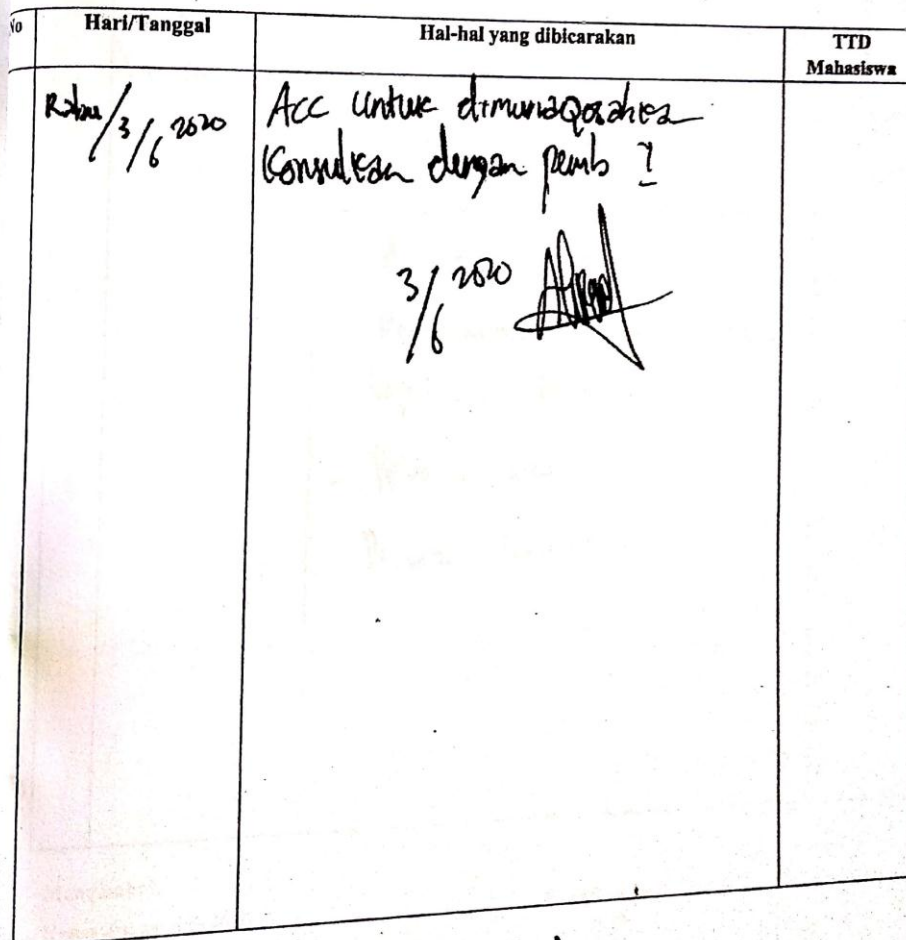 No Hari/Tanggal Hal-hal yang dibicarakan TTD Mahasiswa
Rabu/3/6 2020 Acc untuk dimunaqosahkan
Konsulkan dengan pemb I
3/6 2020